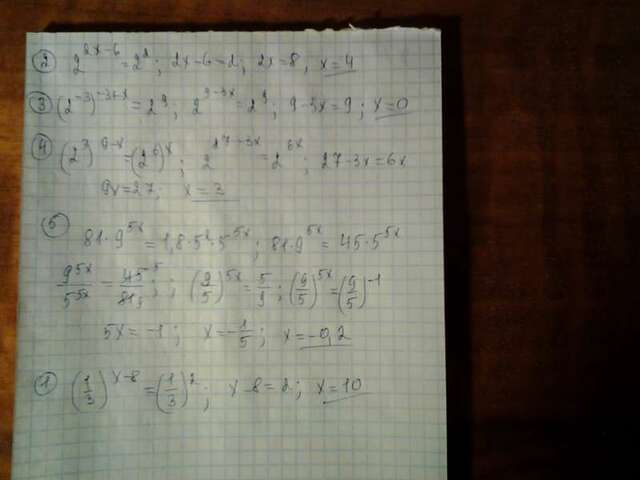 ② 2^{2x-6} = 2^2; 2x-6=2; 2x=8, x=4
③ (2^{-3})^{-3+x} = 2^9; 2^{9-3x} = 2^9; 9-3x=9; x=0
④ (2^3)^{9-x} = (2^6)^x; 2^{27-3x} = 2^{6x}; 27-3x=6x
9x=27; x=3
⑤ 81·9^{5x} = 1,8·5^2·5^{5x}; 81·9^{5x} = 45·5^{5x}
9^{5x}/5^{5x} = 45^5/81_9; (9/5)^{5x} = 5/9; (9/5)^{5x} = (9/5)^{-1}
5x=-1; x=-1/5; x=-0,2
① (1/3)^{x-8} = (1/3)^2; x-8=2; x=10